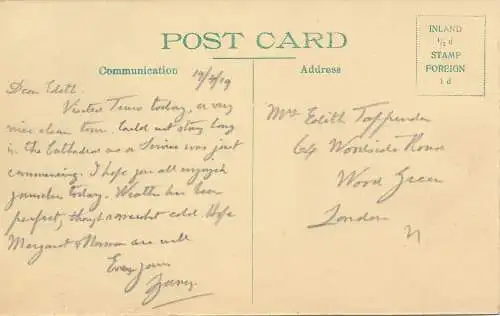 POST CARD
INLAND
½ d
STAMP
FOREIGN
1 d
Communication
Address
19/4/19
Dear Edith
Visited Truro today, a very
nice clean town. Could not stay long
in the Cathedral as a Service was just
commencing. I hope you all enjoyed
yourselves today. Weather has been
perfect, though somewhat cold. Hope
Margaret & Norman are well
Ever yours
Mrs Edith Toppenden
64 Woodside Road
Wood Green
London
N